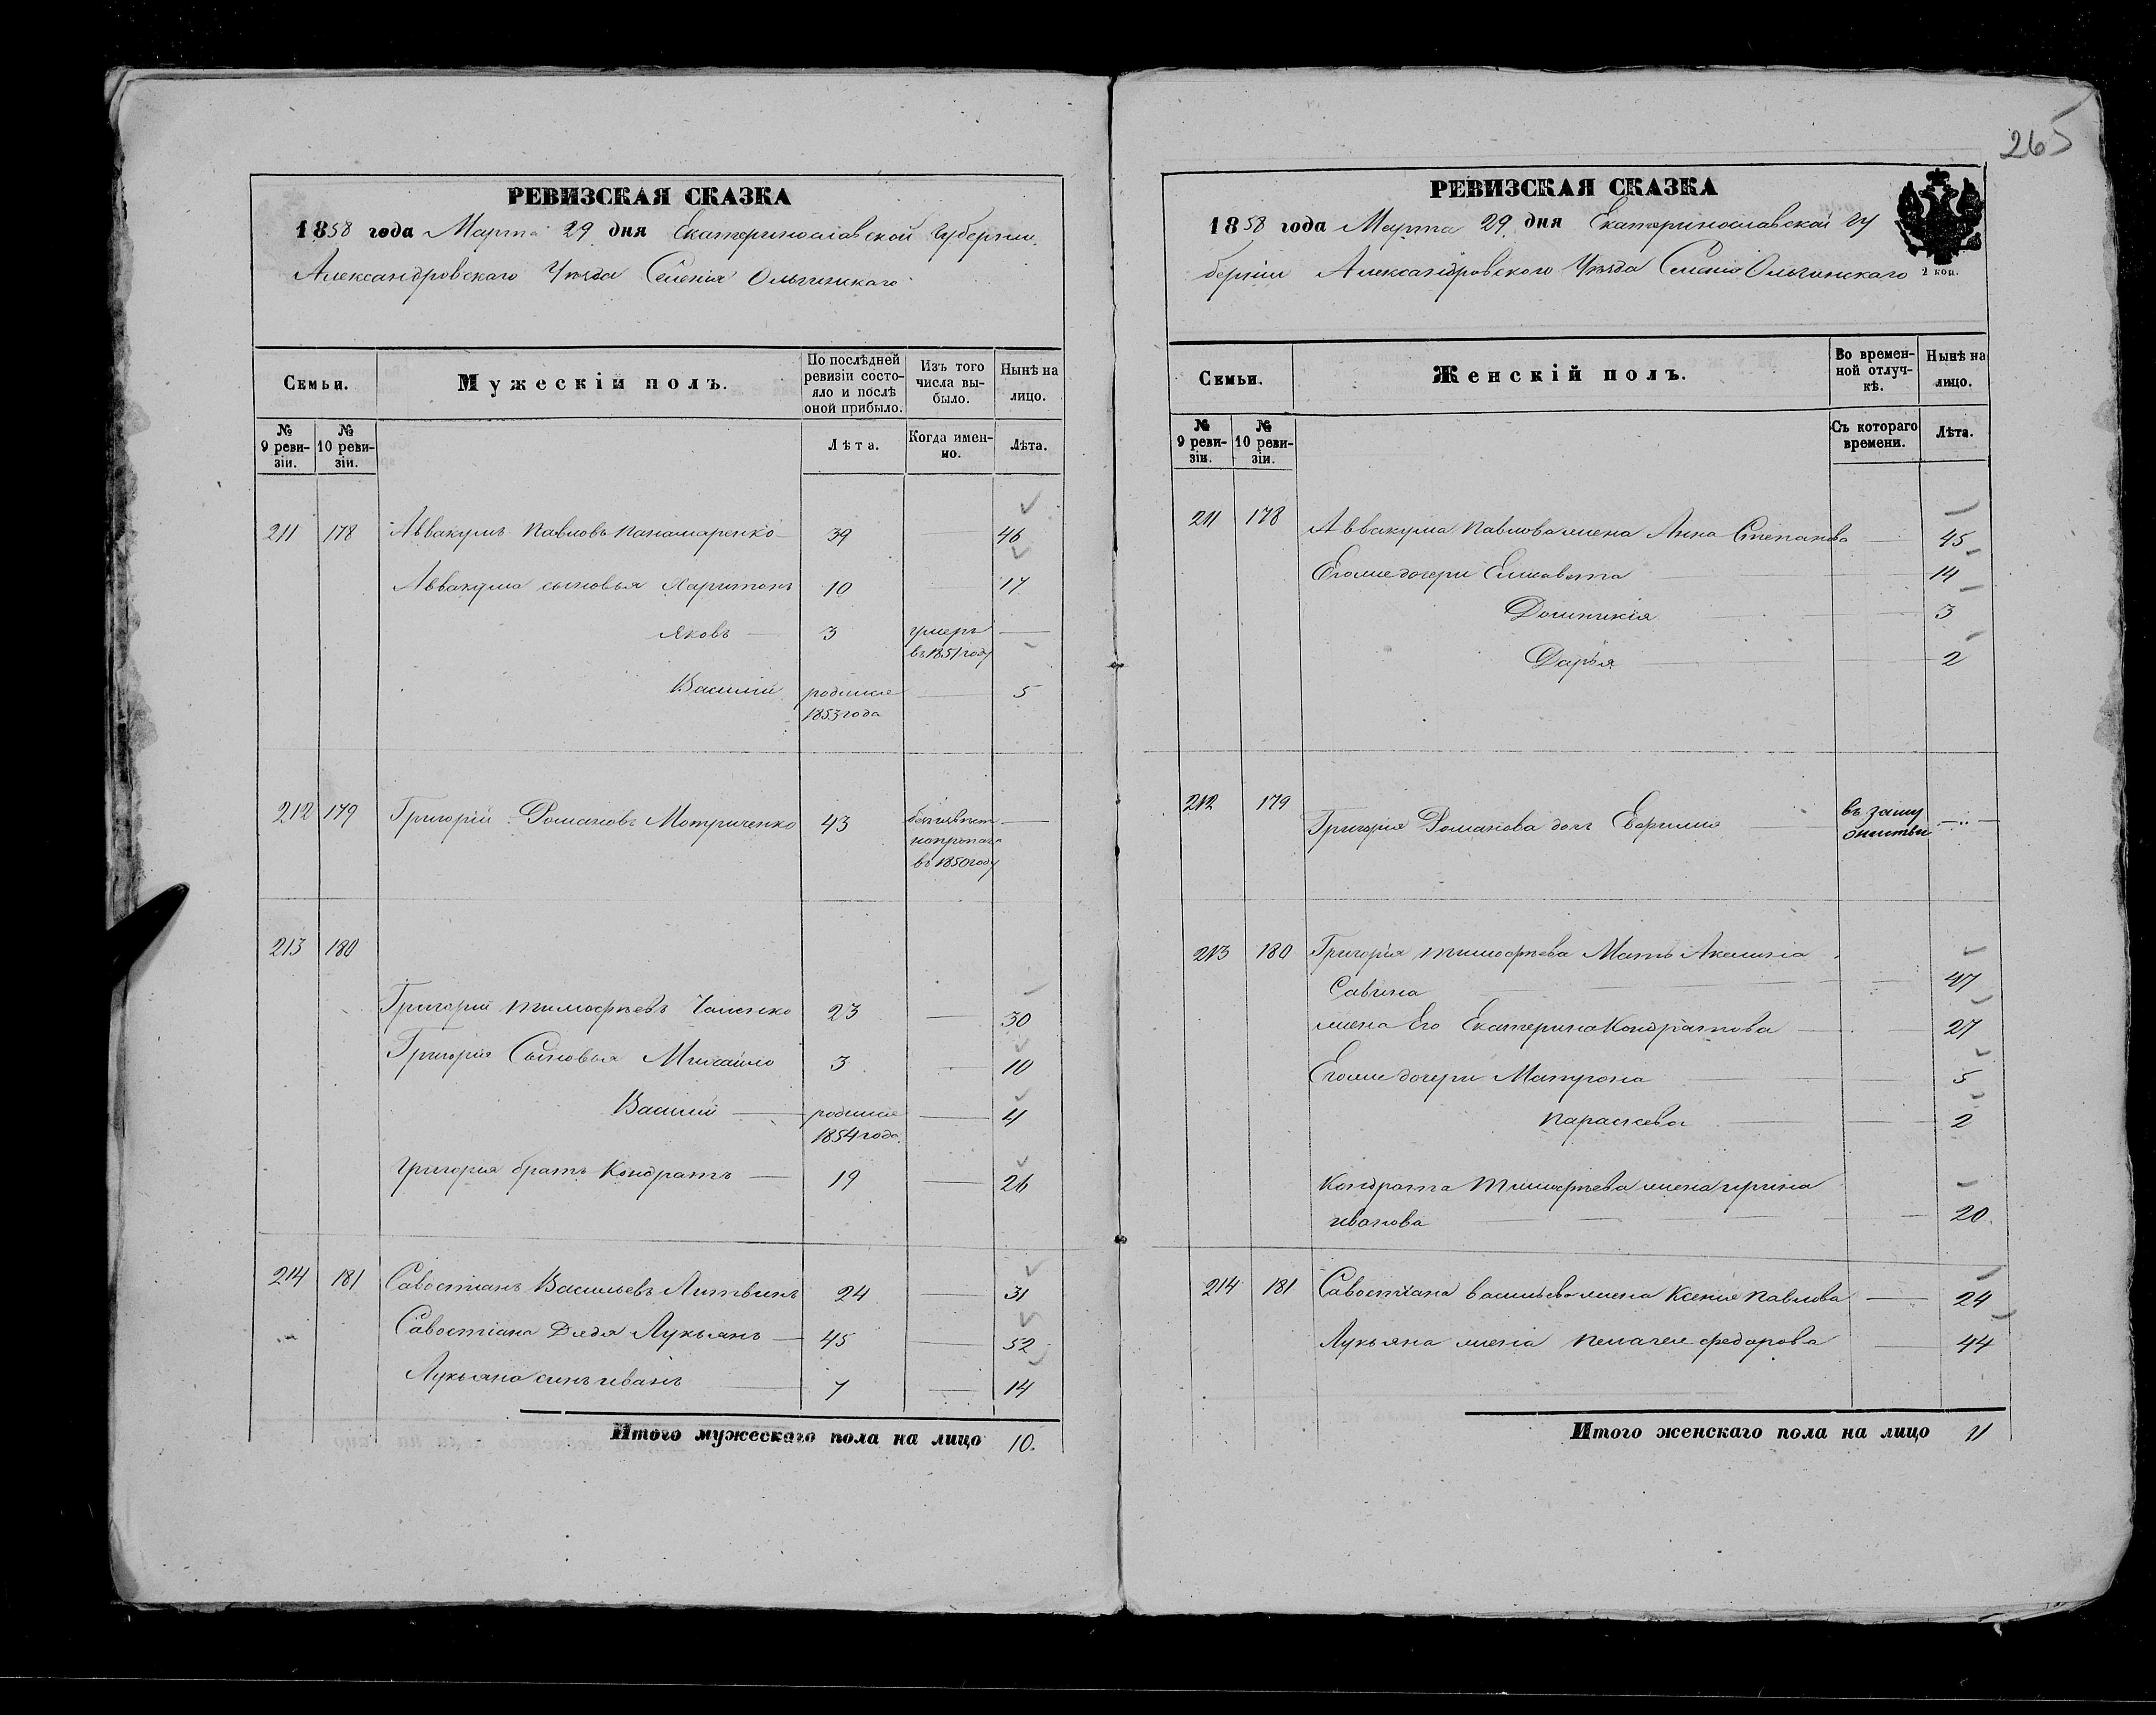 265
РЕВИЗСКАЯ СКАЗКА
1858 года Марта 29 дня Екатеринославской Губернии
Александровскаго Уѣзда Селенія Ольгинскаго
Семьи.
Мужескій полъ.
По послѣдней ревизіи состояло и послѣ оной прибыло.
Изъ того числа выбыло.
Нынѣ на лицо.
№ 9 ревизіи.
№ 10 ревизіи.
Лѣта.
Когда именно.
Лѣта.
211 178 Аввакумъ Павловъ Панамаренко 39 — 46
Аввакума сыновья Харитонъ 10 — 17
Яковъ — 3 умеръ —
въ 1851 году
Василій родился — 5
1853 года
212 179 Григорій Романовъ Мотриченко 43 —
въ 1850 году
213 180
Григорій Тимофѣевъ 23 — 30
Григорія Сыновья Михайло 3 — 10
Василій — родился — 4
1854 года.
Григорія братъ Кондратъ — 19 — 26
214 181 Савостіанъ Васильевъ Литвинъ 24 — 31
Савостіана Дядя Лукьянъ — 45 — 52
Лукьяна синъ иванъ — 7 — 14
Итого мужескаго пола на лицо 10.
РЕВИЗСКАЯ СКАЗКА
1858 года Марта 29 дня Екатеринославской гу
берніи Александровского Уѣзда Селенія Ольгинскаго
2 коп.
Семьи.
Женскій полъ.
Во временной отлучкѣ.
Нынѣ на лицо.
№ 9 ревизіи.
№ 10 ревизіи.
Съ котораго времени.
Лѣта.
211 178 Аввакума Павлова жена Анна Степанова — 45
Егоже дочери Елисавета — 14
Домникія — 3
Дарья — 2
212 179 Григорія Романова доч Евфимия въ заму
—
213 180 Григорія Тимофѣева Мать Акилина
Савина — 47
жена Его Екатерина Кондратова — 27
Егоже дочери Матрона — 5
Параскева — 2
Кондрата Тимофѣева жена ирина
иванова — 20.
214 181 Савостіана васильева жена Ксенія Павлова — 24
Лукьяна жена Пелагея федорова — 44
Итого женскаго пола на лицо 11